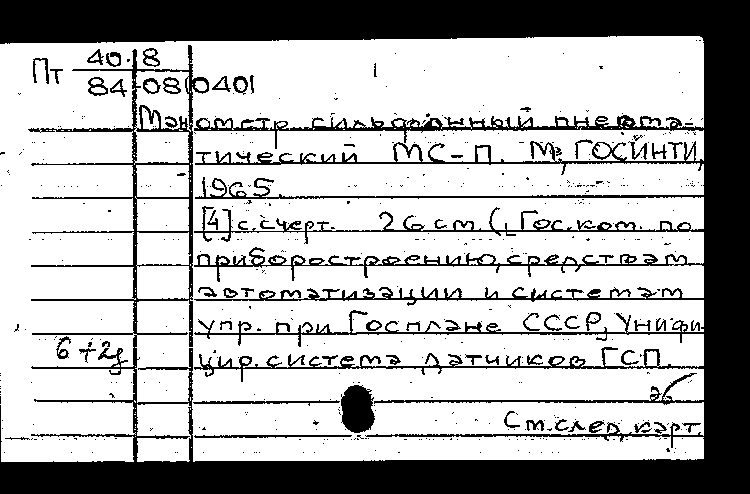 Пт 40.8
84-08(0401
Манометр сильфонный пневма-
тический МС-П. М., ГОСИНТИ,
1965.
[4] с. с черт. 26 см. ([Гос. ком. по
приборостроению, средствам
автоматизации и системам
упр. при Госплане СССР], Унифи-
6+2д цир. система датчиков ГСП.
эб
См. след. карт.